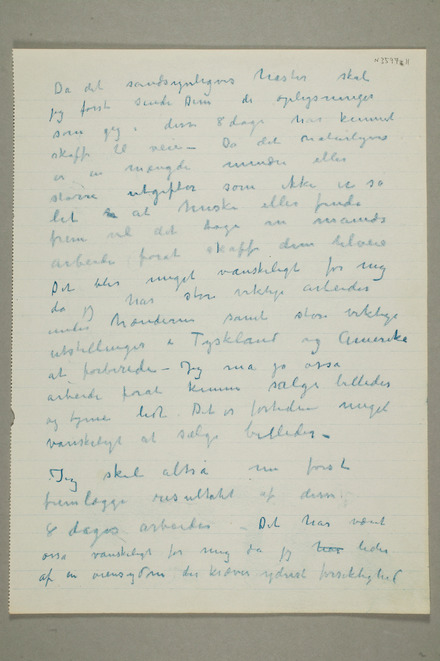 N 3597 ll
Da det sandsynligvis haster skal
jeg først sende Dem de oplysninger
som jeg i disse 8 dage har kunnet
skaffe til veie – Da det naturligvis
er en mængde mindre eller
større utgifter som ikke er så
let at huske eller finde
frem vil det tage en maaneds
arbeide forat skaffe dem tilveie
Det blir meget vanskeligt for mig
da jeg har store viktige arbeider
under hænderne samt store viktige
utstillinger i Tyskland og Amerika
at forberede – Jeg må jo osså
arbeide forat kunne sælge billeder
og tjene lidt. Det er fortiden meget
vanskeligt at sælge billeder –
Jeg skal altså nu først
fremlægge resultatet af disse
8 dages arbeider – Det har været
osså vanskeligt for mig da jeg har lider
af en øiensygdom der kræver yderst forsiktighed